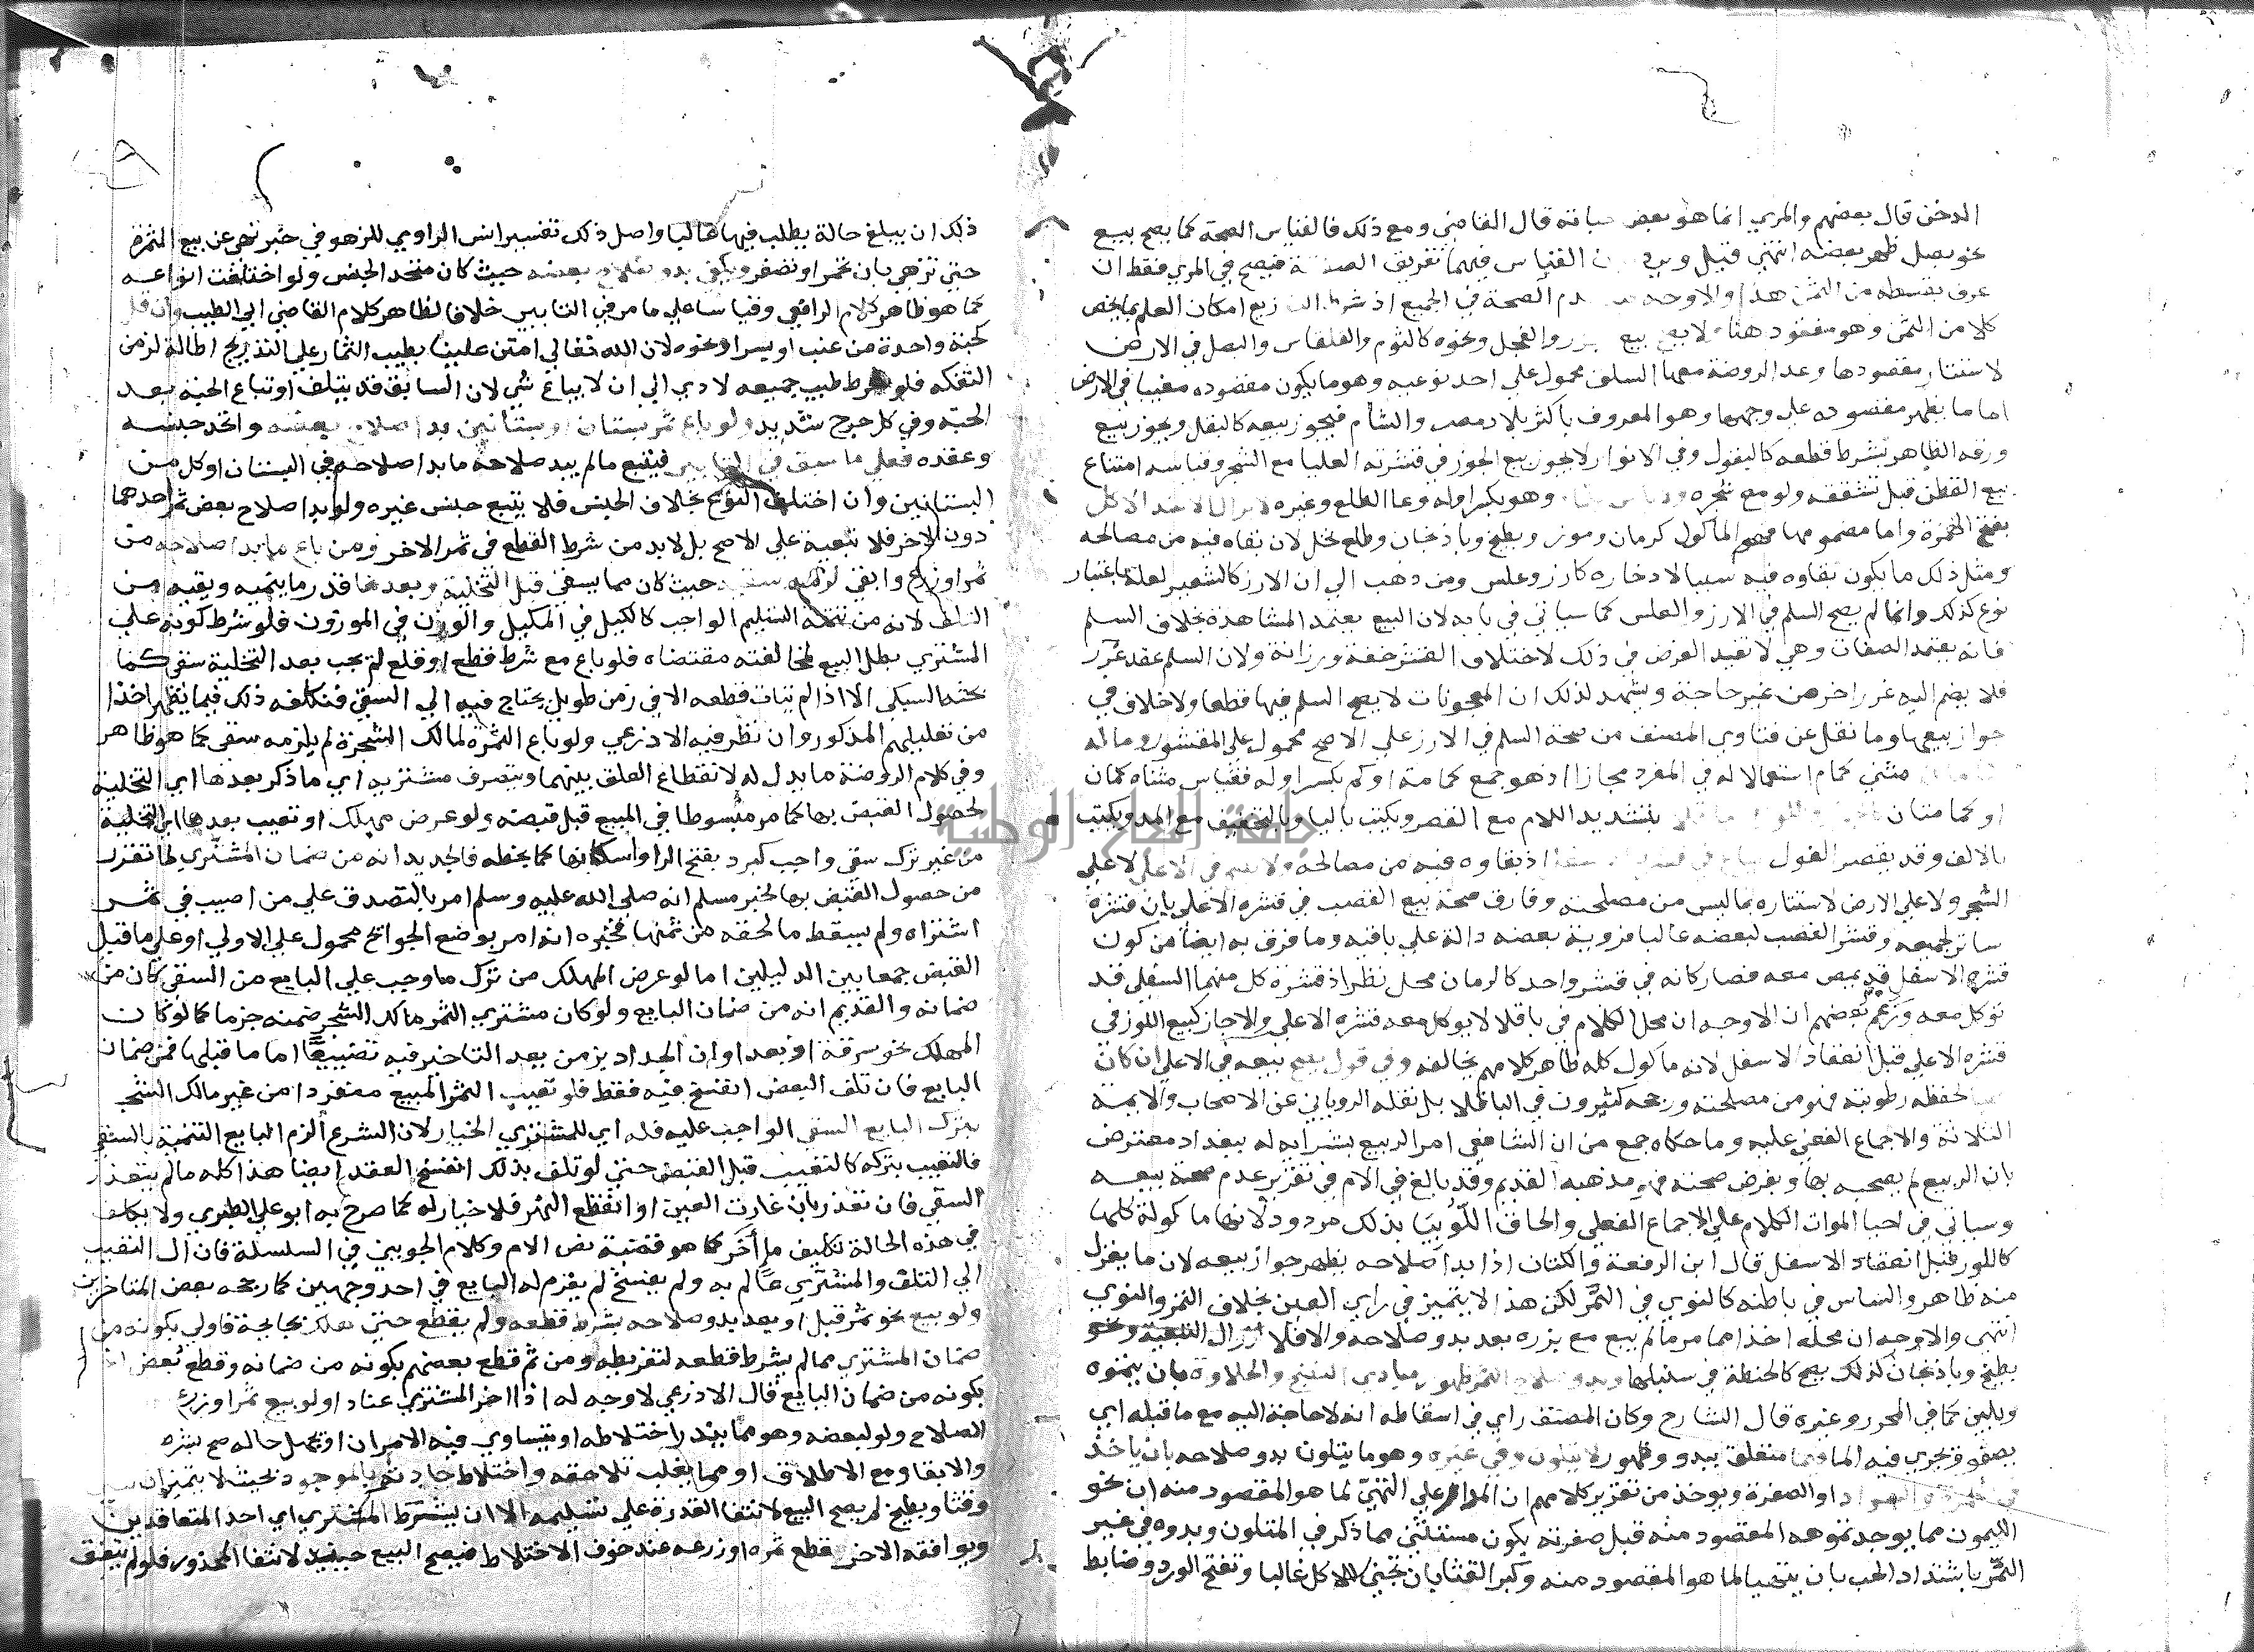 الدخن قال بعضهم والمري انما هو بعض حباته قال القاضي ومع ذلك فالقياس الصحة كما يصح بيع
نحو بصل ظهر بعضه انتهي قيل و القياس فيهما تفريق الصفقة فيصح في المري فقط ان
عرف بقسطه من الثمن هذا والاوجه عدم الصحة في الجميع اذ شرط التوزيع امكان العلم بما يخص
كلا من الثمن وهو مفقود هنا ولا يصح بيع جزر والفجل ونحوه كالثوم والقلقاس والبصل في الارض
لاستتار مقصودها وعد الروضة معها السلق محمول علي احد نوعيه وهو ما يكون مقصوده مغيبا في الارض
اما ما يظهر مقصوده علي وجهها وهو المعروف باكثر بلاد مصر والشام فيجوز بيعه كالبقل ويجوز بيع
ورقه الظاهر بشرط قطعه كالبقول وفي الانوار لا يجوز بيع الجوز في قشرته العليا مع الشجر وقياسه امتناع
بيع القطن قبل تشققه ولو مع شجره وهو بكسر اوله وعا الطلع وغيره لا يزال الا عند الاكل
بفتح الهمزة واما مضمومها فهو الماكول كرمان وموز وبطيخ وباذنجان وطلع نخل لان بقاه فيه من مصالحه
ومثل ذلك ما يكون بقاوه فيه سببا لادخاره كارز وعلس ومن ذهب الي ان الارز كالشعير لعله باعتبار
نوع كذلك وانما لم يصح السلم في الارز والعلس كما سياتي في بابه لان البيع يعتمد المشاهدة بخلاف السلم
فانه يعتمد الصفات وهي لا تفيد الغرض في ذلك لاختلاف القشر خفة ورزانة ولان السلم عقد غرر
فلا يضم اليه غرر اخر من غير حاجة ويشهد لذلك ان المعجونات لا يصح السلم فيها قطعا ولا خلاف في
جواز بيعها وما نقل عن فتاوي المصنف من صحة السلم في الارز علي الاصح محمول علي المقشور وما له
مثني كمام استعمالا له في المفرد مجازا اذ هو جمع كمامة او كم بكسر اوله فقياس مثناه كمان
او كمامتان بتشديد اللام مع القصر ويكتب باليا وبالتخفيف مع المد ويكتب
بالالف وقد يقصر الفول اذ بقاوه فيه من مصالحه ولا يصح في الاعلي لا علي
الشجر ولا علي الارض لاستتاره بما ليس من مصلحته وفارق صحة بيع القصب في قشره الاعلي بان قشره
ساتر لجميعه وقشر القصب لبعضه غالبا فروية بعضه دالة علي باقيه وما فرق به ايضا من كون
قشره الاسفل قد يمص معه فصار كانه في قشر واحد كالرمان محل نظر اذ قشرة كل منهما السفلي قد
توكل معه وزعم بعضهم ان الاوجه ان محل الكلام في باقلا لا يوكل معه قشره الاعلي والا جاز كبيع اللوز في
قشره الاعلي قبل انعقاد الاسفل لانه ماكول كله ظاهر كلامهم يخالفه وفي قول يصح بيعه في الاعلي ان كان
لحفظه رطوبته فهو من مصلحته ورجحه كثيرون في الباقلا بل نقله الروياني عن الاصحاب والايمة
الثلاثة والاجماع الفعلي عليه وما حكاه جمع من ان الشافعي امر الربيع بشرايه له ببغداد معترض
بان الربيع لم يصحبه بها وبفرض صحته فهو مذهبه القديم وقد بالغ في الام في تقرير عدم صحة بيعه
وسياتي في احيا الموات الكلام علي الاجماع الفعلي والحاق اللوبيا بذلك مردود لانها ماكولة كلها
كاللوز قبل انعقاد الاسفل قال ابن الرفعة والكتان اذا بدا صلاحه يظهر جواز بيعه لان ما يغزل
منه ظاهر والساس في باطنه كالنوي في التمر لكن هذا لا يتميز في راي العين بخلاف التمر والنوي
انتهي والاوجه ان محله اخذا مما مر ما لم يبع مع بزره بعد بدو صلاحه والا فلا التبعية ونحو
بطيخ وباذنجان كذلك يصح كالحنطة في سنبلها وبدو صلاح الثمر ظهور مبادي النضج والحلاوة بان يتموه
ويلين كما في المحرر وغيره قال الشارح وكان المصنف راي في اسقاطه انه لا حاجة اليه مع ما قبله اي
يصفو ويجري فيه الما متعلق ببدو وظهور لا يتلون وفي غيره وهو ما يتلون بدو صلاحه بان ياخذ
في الحمرة والسواد او الصفرة ويوخذ من تقرير كلامهم ان المدار علي التهيي لما هو المقصود منه ان نحو
الليمون مما يوجد تموهه المقصود منه قبل صفرته يكون مستثني مما ذكر في المتلون وبدوه في غير
الثمر باشتداد الحب بان يتهيا لما هو المقصود منه وكبر القثا بان تجني للاكل غالبا وتفتح الورد وضابط
ذلك ان يبلغ حالة يطلب فيها غالبا واصل ذلك تفسير انس الراوي للزهو في خبر نهي عن بيع الثمرة
حتي تزهي بان تحمر او تصفر ويكفي بدو صلاح بعضه حيث كان متحد الجنس ولو اختلفت انواعه
كما هو ظاهر كلام الرافعي وقياسا علي ما مر في التابير خلافا لظاهر كلام القاضي ابي الطيب وان قل
كحبة واحدة من عنب او بسر او نحوه لان الله تعالي امتن علينا بطيب الثمار علي التدريج اطالة لزمن
التفكه فلو شرط طيب جميعه لادي الي ان لا يباع شي لان السابق قد يتلف او تباع الحبة بعد
الحبة وفي كل حرج شديد ولو باع ثمر بستان او بستانين بدا صلاح بعضه واتحد جنسه
وعقده فعلي ما سبق في التابير فيتبع ما لم يبد صلاحه ما بدا صلاحه في البستان او كل من
البستانين وان اختلف النوع بخلاف الجنس فلا يتبع جنس غيره ولو بدا صلاح بعض ثمر احدهما
دون الاخر فلا تبعية علي الاصح بل لابد من شرط القطع في ثمر الاخر ومن باع ما بدا صلاحه من
ثمر او زرع وابقي لزمه سقيه حيث كان مما يسقي قبل التخلية وبعدها قدر ما ينميه ويقيه من
التلف لانه من تتمة التسليم الواجب كالكيل في المكيل والوزن في الموزون فلو شرط كونه علي
المشتري بطل البيع لمخالفته مقتضاه فلو باع مع شرط قطع او قلع لم يجب بعد التخلية سقي كما
بحثه السبكي الا اذا لم يتات قطعه الا في زمن طويل يحتاج فيه الي السقي فنكلفه ذلك فيما يظهر اخذا
من تعليلهم المذكور وان نظر فيه الاذرعي ولو باع الثمرة لمالك الشجرة لم يلزمه سقي كما هو ظاهر
وفي كلام الروضة ما يدل له لانقطاع العلق بينهما ويتصرف مشتريه اي ما ذكر بعدها اي التخلية
لحصول القبض بها كما مر مبسوطا في المبيع قبل قبضه ولو عرض مهلك او تعيب بعدها اي التخلية
من غير ترك سقي واجب كبرد بفتح الرا او اسكانها كما بخطه فالجديد انه من ضمان المشتري لما تقرر
من حصول القبض بها لخبر مسلم انه صلي الله عليه وسلم امر بالتصدق علي من اصيب في ثمر
اشتراه ولم يسقط ما لحقه من ثمنها فخبره انه امر بوضع الجوائح محمول علي الاولي او علي ما قبل
القبض جمعا بين الدليلين اما لو عرض المهلك من ترك ما وجب علي البايع من السقي كان من
ضمانه والقديم انه من ضمان البايع ولو كان مشتري الثمر مالك الشجر ضمنه جزما كما لو كان
المهلك نحو سرقة او بعد اوان الجداد بزمن يعد التاخير فيه تضييعا اما ما قبلها فمن ضمان
البايع فان تلف البعض انفسخ فيه فقط فلو تعيب الثمر المبيع منفردا من غير مالك الشجر
بترك البايع السقي الواجب عليه فله اي للمشتري الخيار لان الشرع الزم البايع التنمية بالسقي
فالتعيب بتركه كالتعيب قبل القبض حتي لو تلف بذلك انفسخ العقد ايضا هذا كله ما لم يتعذر
السقي فان تعذر بان غارت العين او انقطع النهر فلا خيار له كما صرح به ابو علي الطبري ولا يكلف
في هذه الحالة تكليف ما اخر كما هو قضية نص الام وكلام الجويني في السلسلة فان ال التعيب
الي التلف والمشتري عالم به ولم يفسخ لم يغرم له البايع في احد وجهين كما رجحه بعض المتاخرين
ولو بيع نحو ثمر قبل او بعد بدو صلاحه بشرط قطعه ولم يقطع حتي هلك بجايحة فاولي بكونه من
ضمان المشتري مما لم يشرط قطعه لتفريطه ومن ثم قطع بعضهم بكونه من ضمانه وقطع بعض اخر
بكونه من ضمان البايع قال الاذرعي لا وجه له اذا اخر المشتري عنادا ولو بيع ثمر او زرع
الصلاح ولو لبعضه وهو مما يندر اختلاطه او يتساوي فيه الامران او يجهل حاله صح بشرط
والابقا ومع الاطلاق او مما يغلب تلاحقه واختلاط حادثه بالموجود بحيث لا يتميزان
وقثا وبطيخ لم يصح البيع لانتفا القدرة علي تسليمه الا ان يشترط المشتري اي احد المتعاقدين
ويوافقه الاخر قطع ثمره او زرعه عند خوف الاختلاط فيصح البيع حينيذ لانتفا المحذور فلو لم يتفق